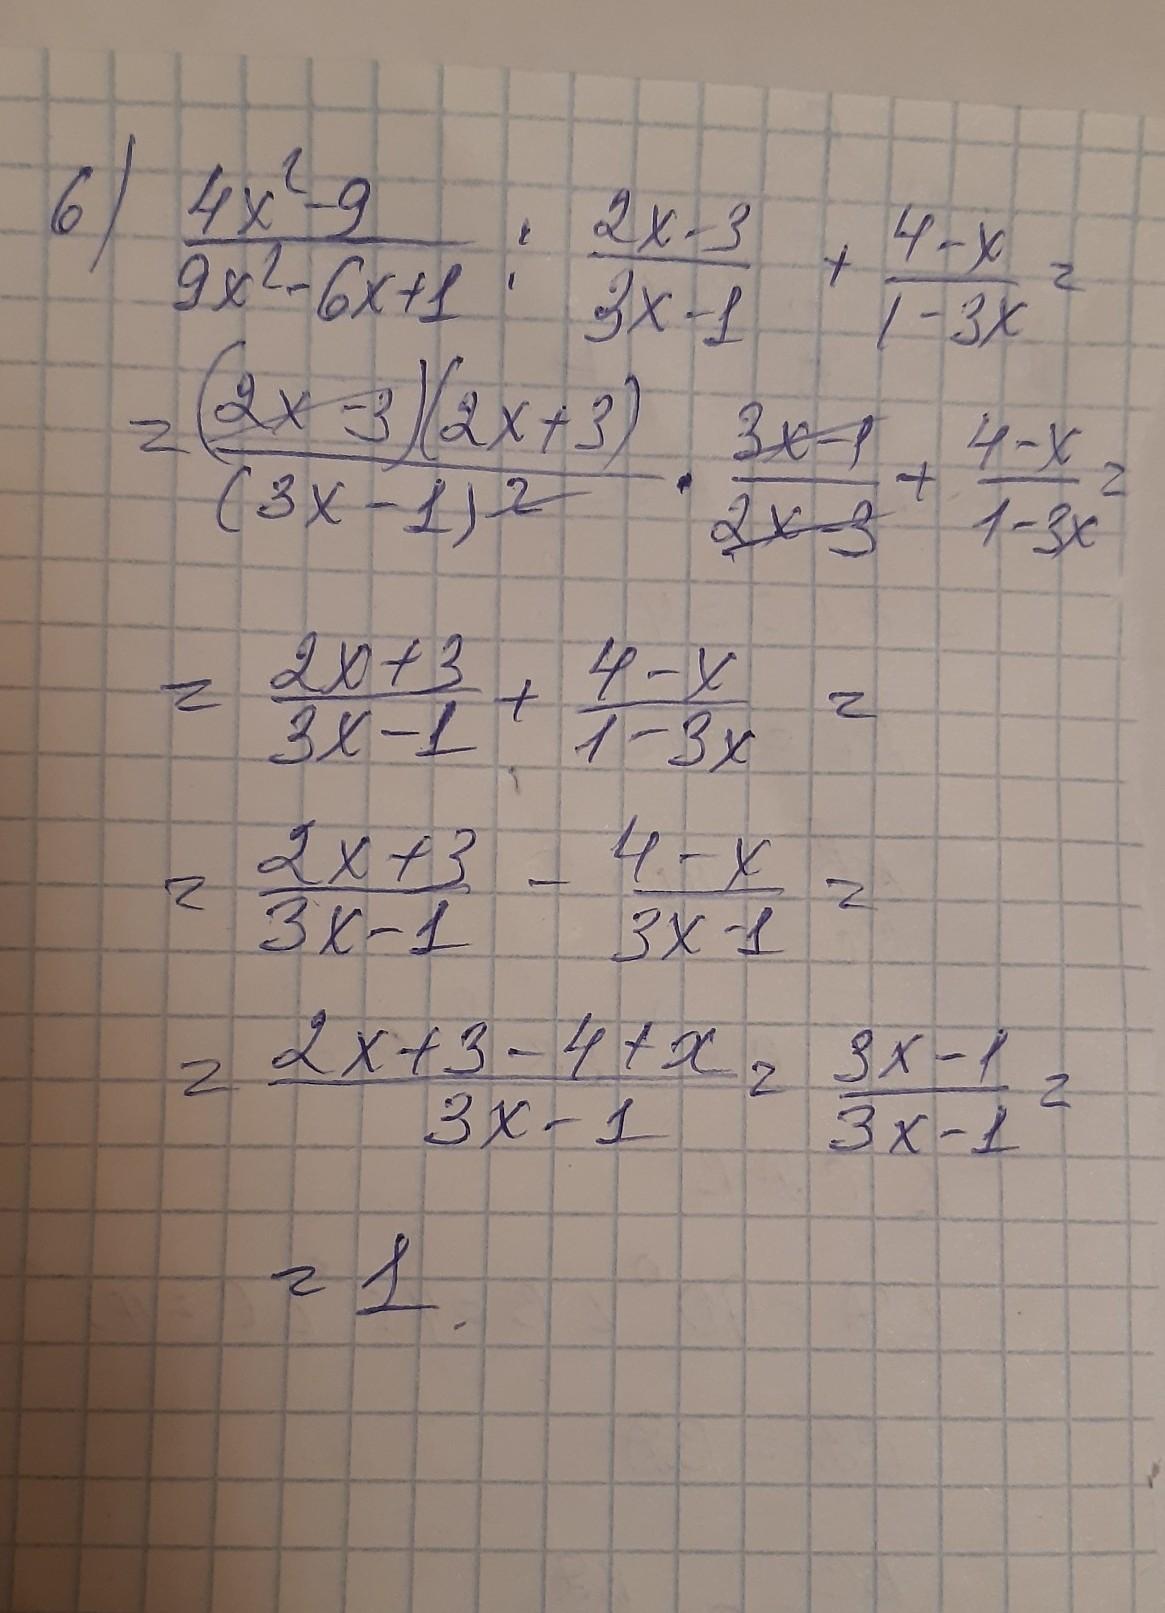 6) (4x²-9)/(9x²-6x+1) : (2x-3)/(3x-1) + (4-x)/(1-3x) =
= ((2x-3)(2x+3))/((3x-1)²) · (3x-1)/(2x-3) + (4-x)/(1-3x) =
= (2x+3)/(3x-1) + (4-x)/(1-3x) =
= (2x+3)/(3x-1) - (4-x)/(3x-1) =
= (2x+3-4+x)/(3x-1) = (3x-1)/(3x-1) =
= 1.